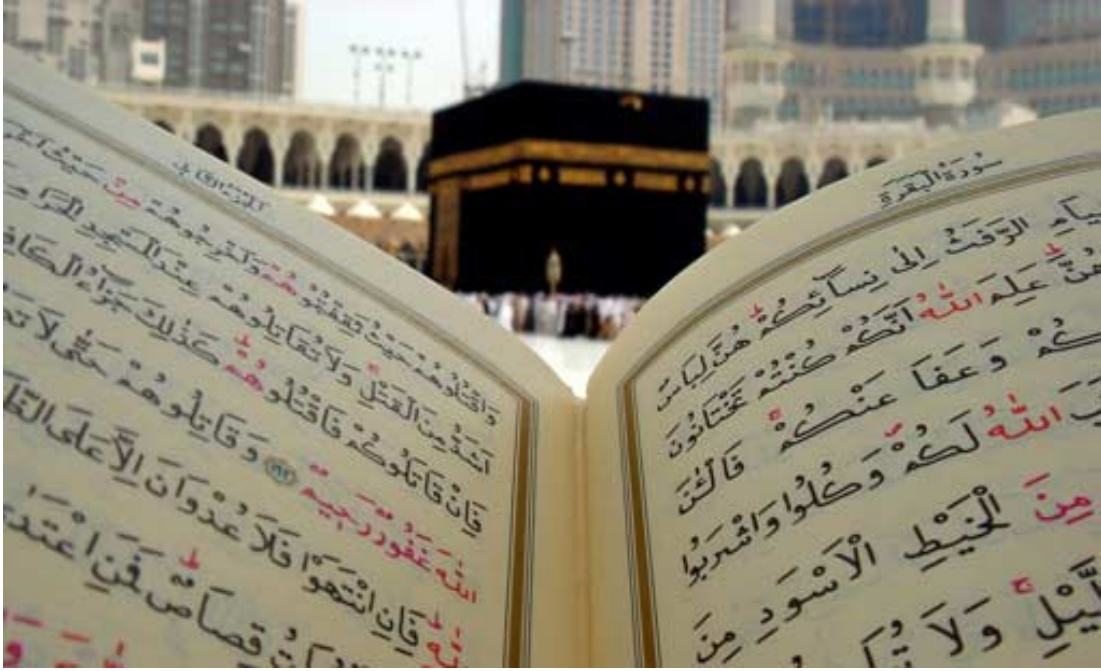 سُورَةُ الْبَقَرَةِ
ـيَامِ الرَّفَثُ اِلٰى نِسَآئِكُمْ هُنَّ لِبَاسٌ
هُنَّ عَلِمَ اللّٰهُ اَنَّكُمْ كُنْتُمْ تَخْتَانُونَ
ـكُمْ وَعَفَا عَنْكُمْ فَالْئٰنَ
ـبَ اللّٰهُ لَكُمْ وَكُلُوا وَاشْرَبُوا
مِنَ الْخَيْطِ الْاَسْوَدِ مِنَ
ـلَّيْلِ وَلَا
اَلْجُزْءُ ٢
وَاقْتُلُوهُمْ حَيْثُ ثَقِفْتُمُوهُمْ وَاَخْرِجُوهُمْ مِنْ حَيْثُ
اَشَدُّ مِنَ الْقَتْلِ وَلَا تُقَاتِلُوهُمْ عِنْدَ الْمَسْجِدِ الْحَرَامِ
فَاِنْ قَاتَلُوكُمْ فَاقْتُلُوهُمْ كَذٰلِكَ جَزَآءُ الْكَافِـ
اللّٰهَ غَفُورٌ رَحِيمٌ ١٩٢ وَقَاتِلُوهُمْ حَتّٰى لَا
ـلّٰهِ فَاِنِ انْتَهَوْا فَلَا عُدْوَانَ اِلَّا عَلَى
ـاتُ قِصَاصٌ فَمَنِ اعْتَدٰى